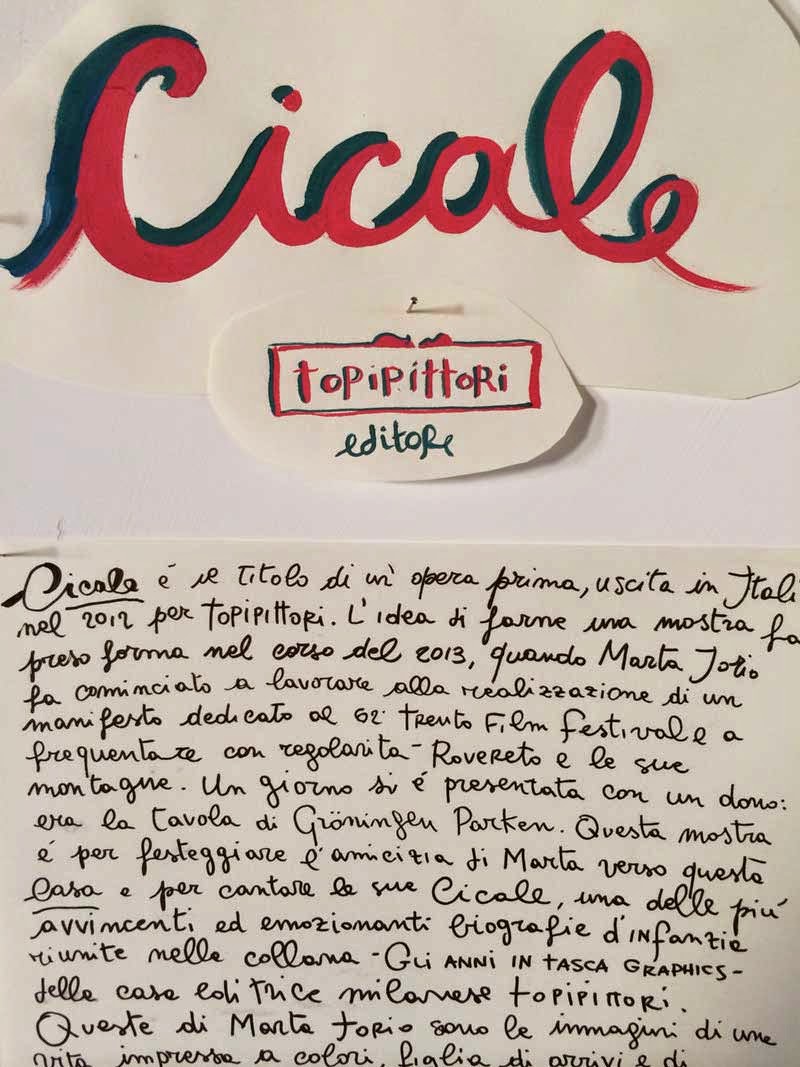 Cicale
topipittori
editore
Cicale é il titolo di un' opera prima, uscita in Itali
nel 2012 per topipittori. L'idea di farne una mostra ha
preso forma nel corso del 2013, quando Marta Iorio
ha cominciato a lavorare alla realizzazione di un
manifesto dedicato al 62° trento Film festival e a
frequentare con regolarita - Rovereto e le sue
montagne. Un giorno si é presentata con un dono:
era la tavola di Gröningen Parken. Questa mostra
é per festeggiare l'amicizia di Marta verso questa
Casa e per cantare le sue Cicale, una delle piú
avvincenti ed emozionanti biografie d'infanzia
riunite nella collana - Gli ANNI IN TASCA GRAPHICS -
della casa editrice milanese topipittori.
Queste di Marta Iorio sono le immagini di una
vita impressa a colori, figlia di arrivi e di